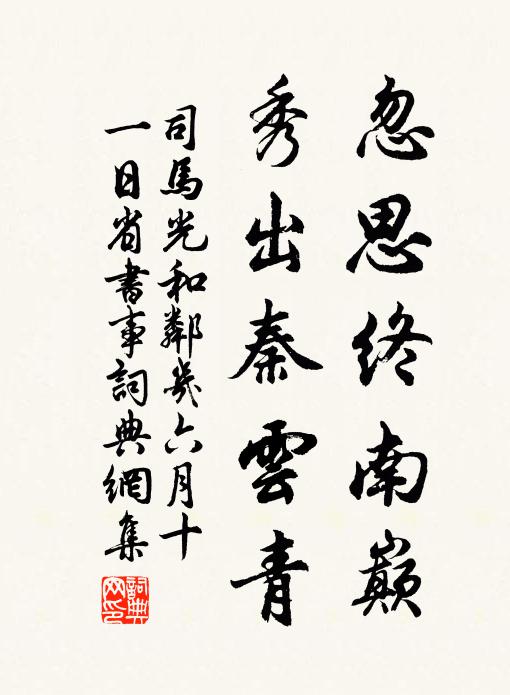 忽思終南巔
秀出秦雲青
司馬光和鄰幾六月十
一日省書事詞典網集
詞典
网印